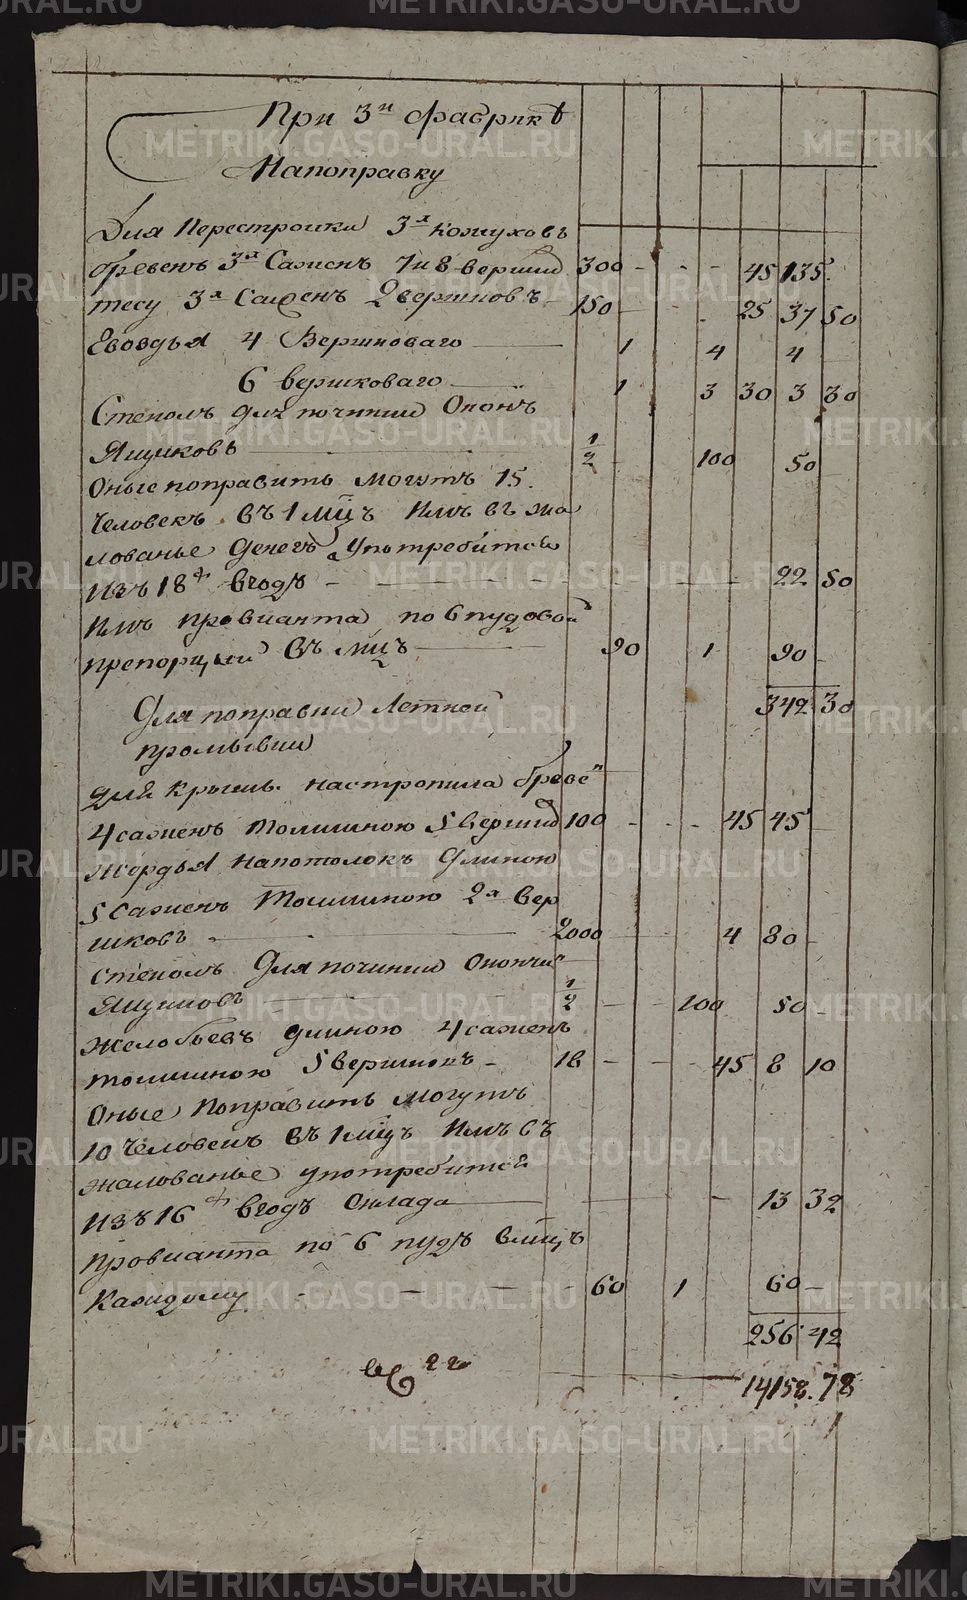 При 3й фабрикѣ
Напоправку
Для Перестройки 3х кожуховъ
бревенъ 3х Саженъ 7 и 8 вершко 300 - - - 45 135.
тесу 3х Саженъ 2 вершковъ - 150 - . 25 37 50
Гвоздья 4 Вершковаго — 1 4 4 -
6 вершковаго — 1 3 30 3 30
Стеколъ для починки Оконъ
Ящиковъ — 1/2 - 100 50 -
Оные поправить могутъ 15.
Человекъ въ 1 мцъ Имъ въ жа
лованье денегъ употребится
Изъ 18 р вгодъ - — 22 50
Имъ провианта по 6 пудовой
препорцыи въ мцъ — 90 1 90 -
342 30
Для поправки Летней
промывки
для крышъ. настропила бреве
4 саженъ толщиною 5 вершко 100 - - - 45 45 -
жердья напотолокъ длиною
5 саженъ толщиною 2х вер
шковъ — 2000 4 80 -
стеколъ Для починки окончи
Ящиковъ — 1/2 - - 100 50 -
желобьевъ длиною 4 саженъ
толщиною 5 вершковъ - 18 - - 45 8 10
Оные Поправить могутъ
10 человекъ въ 1 мцъ Имъ въ
жалованье употребится
Изъ 16 р вгодъ Оклада — 13 32
провианта по 6 пудъ вмцъ
Каждому - — 60 1 60 -
256 42
14158. 78
METRIKI.GASO-URAL.RU